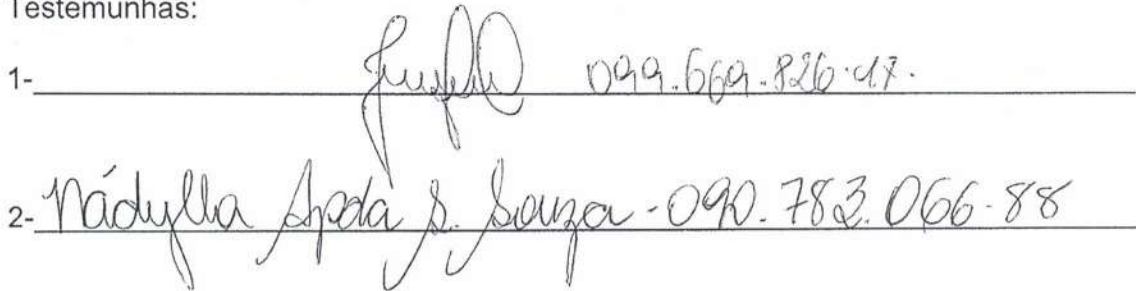 Testemunhas:
1- 099.669.826-17.
2- Nádylla Apda S. Souza - 090.783.066-88